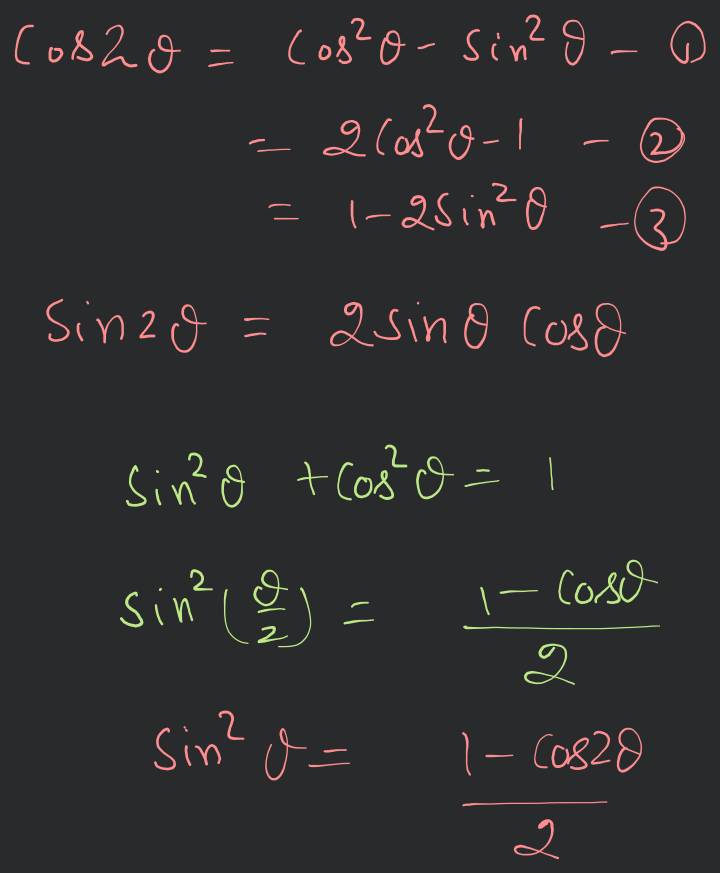 Cos2θ = Cos²θ - Sin²θ - ①
= 2Cos²θ-1 - ②
= 1-2Sin²θ - ③
Sin2θ = 2sinθ Cosθ
Sin²θ + Cos²θ = 1
Sin²(θ/2) = (1-Cosθ)/2
Sin²θ = (1-Cos2θ)/2